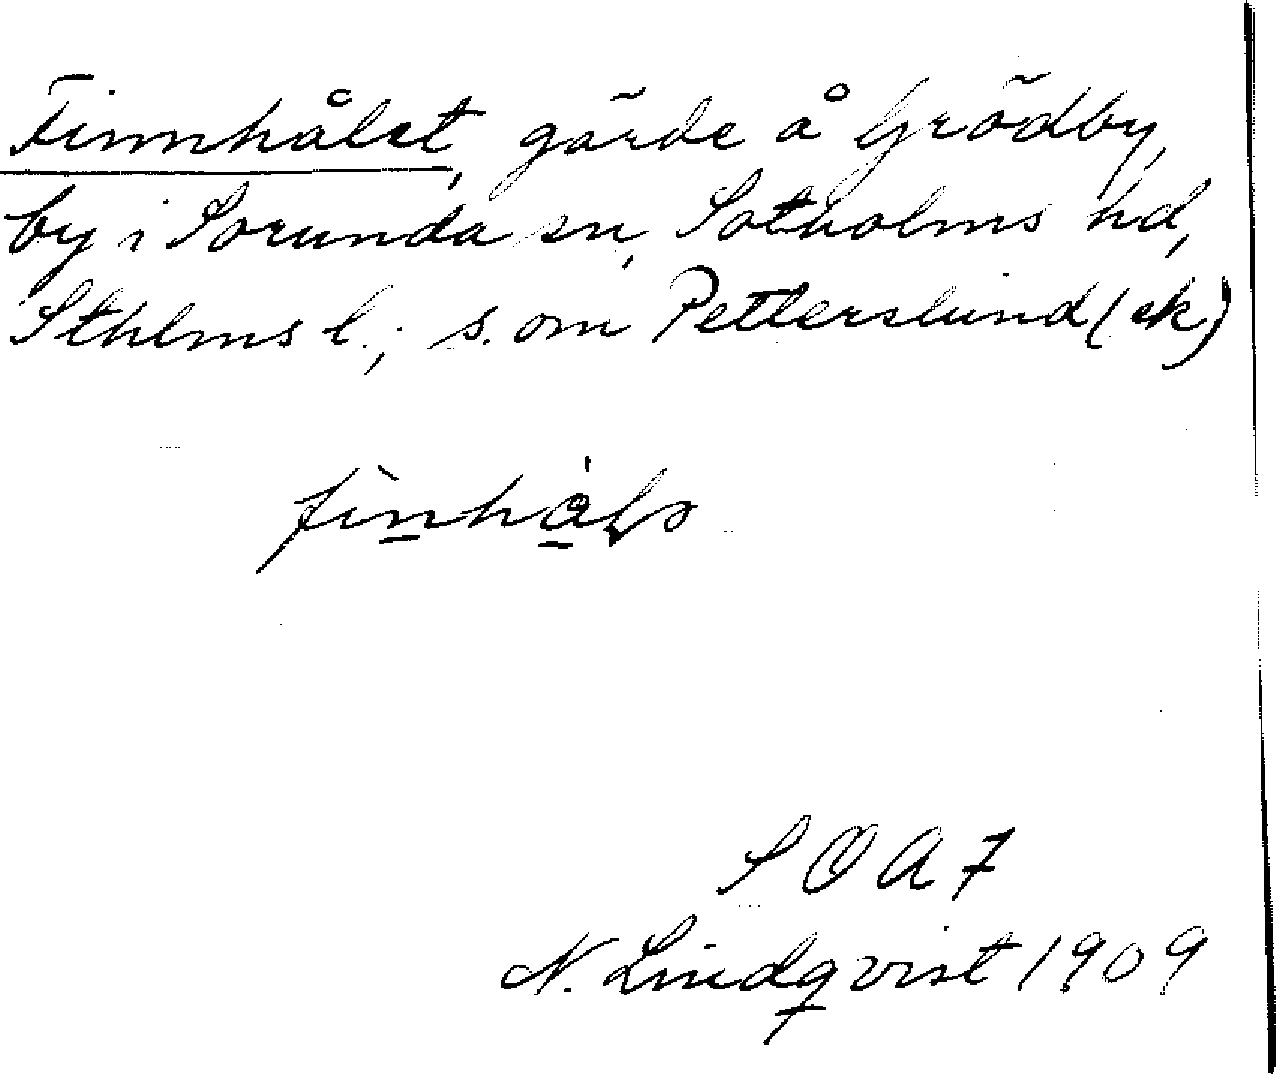 Finnhålet, gärde å Grödby,
by i Sorunda sn, Sotholms hd,
Sthlms l.; s. om Petterslund (ek)
SOA 7
N. Lindqvist 1909